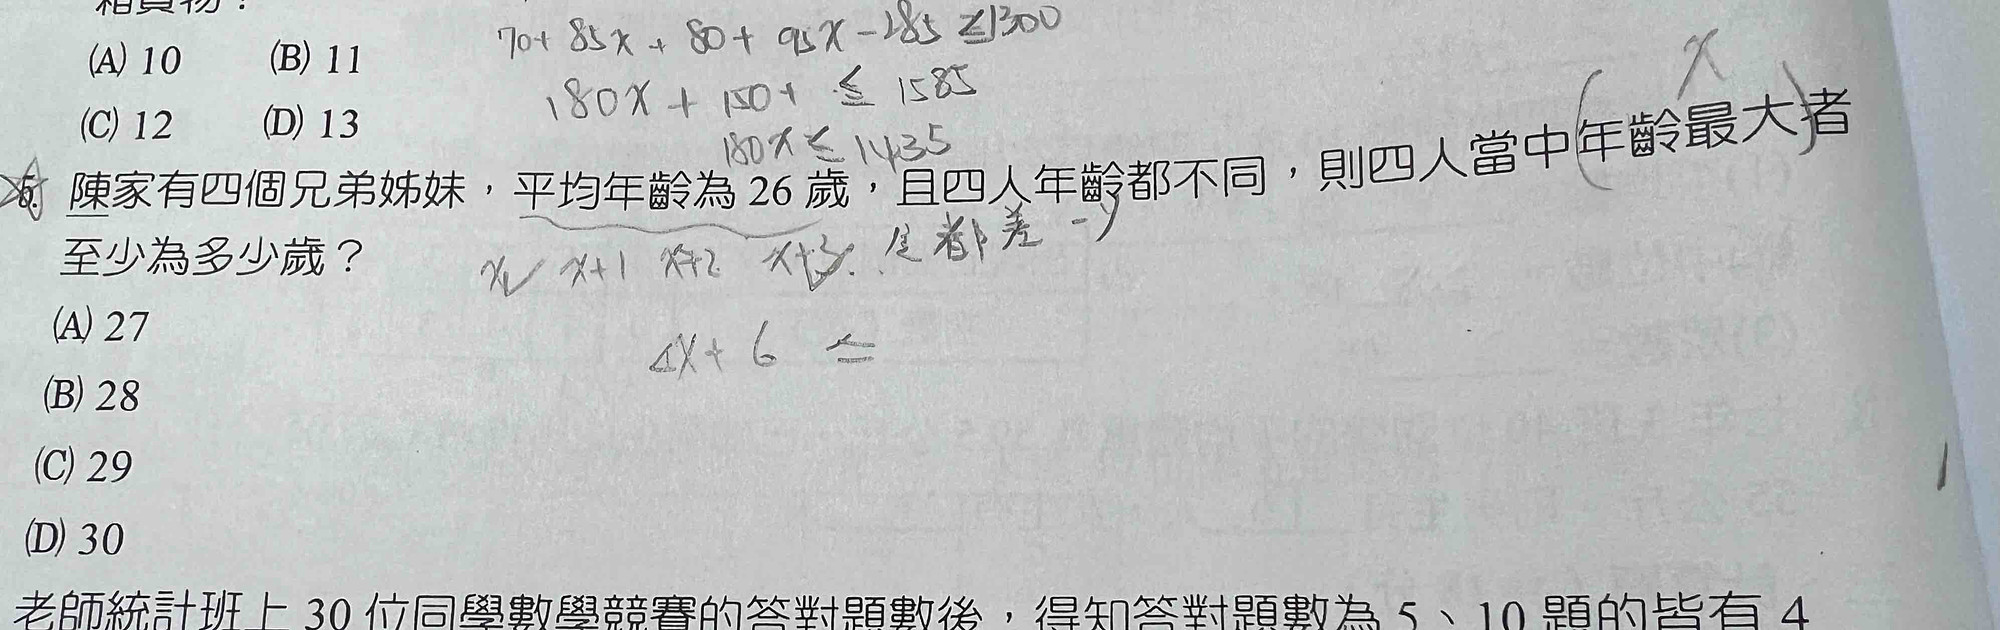 (A) 10 (B) 11
70+ 85x + 80 + 95x - 285 ≤ 1300
(C) 12 (D) 13
180x + 150+ ≤ 1585
180x ≤ 1435
x
陳家有四個兄弟姊妹，平均年齡為 26 歲，且四人年齡都不同，則四人當中(年齡最大)者
至少為多少歲？
x x+1 x+2 x+3 都差一歲
4x + 6 =
(A) 27
(B) 28
(C) 29
(D) 30
老師統計班上 30 位同學數學競賽的答對題數後，得知答對題數為 5、10 題的皆有 4